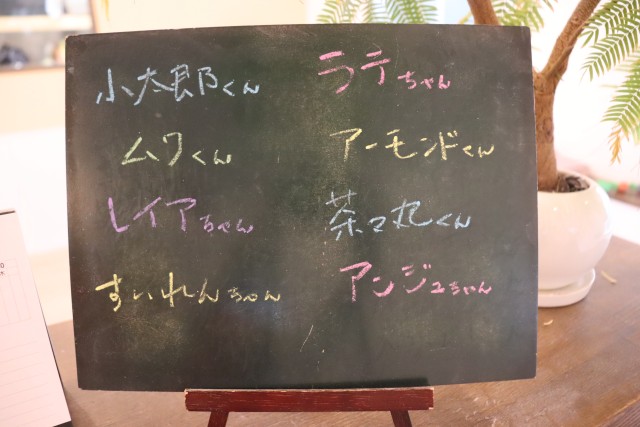 小太郎くん
ラテちゃん
ムワくん
アーモンドくん
レイアちゃん
茶々丸くん
すいれんちゃん
アンジュちゃん